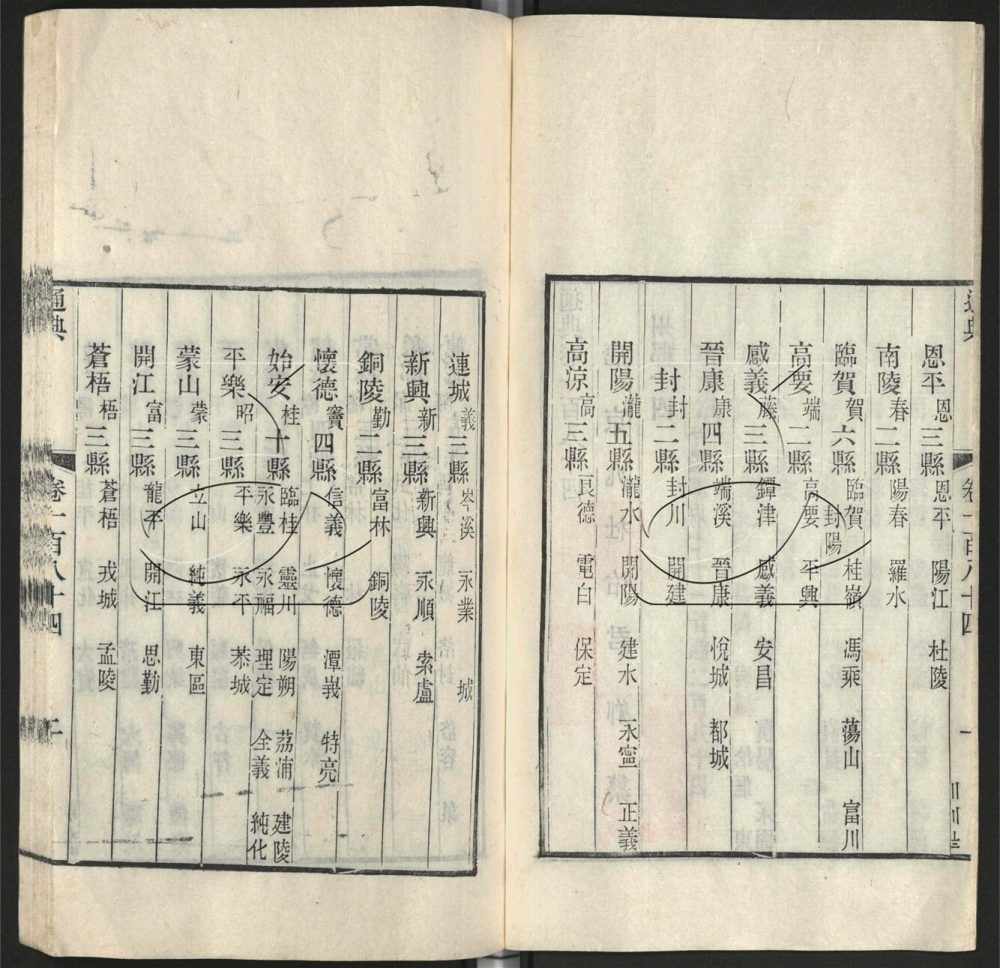 恩平恩三縣恩平 陽江 杜陵
南陵春二縣陽春 羅水
臨賀賀六縣臨賀 桂嶺 馮乘 蕩山 富川 封陽
高要端二縣高要 平興
感義藤三縣鐔津 感義 安昌
晉康康四縣端溪 晉康 悅城 都城
封封二縣封川 開建
開陽瀧五縣瀧水 開陽 建水 永寧 正義
高涼高三縣良德 電白 保定
通典
卷一百八十四
連城義三縣岑溪 永業 城
新興新三縣新興 永順 索盧
銅陵勤二縣富林 銅陵
懷德竇四縣信義 懷德 潭峩 特亮
始安桂十縣臨桂 靈川 陽朔 荔浦 建陵
永豐 永福 理定 全義 純化
平樂昭三縣平樂 永平 恭城
蒙山蒙三縣立山 純義 東區
開江富三縣龍平 開江 思勤
蒼梧梧三縣蒼梧 戎城 孟陵
通典
卷一百八十四